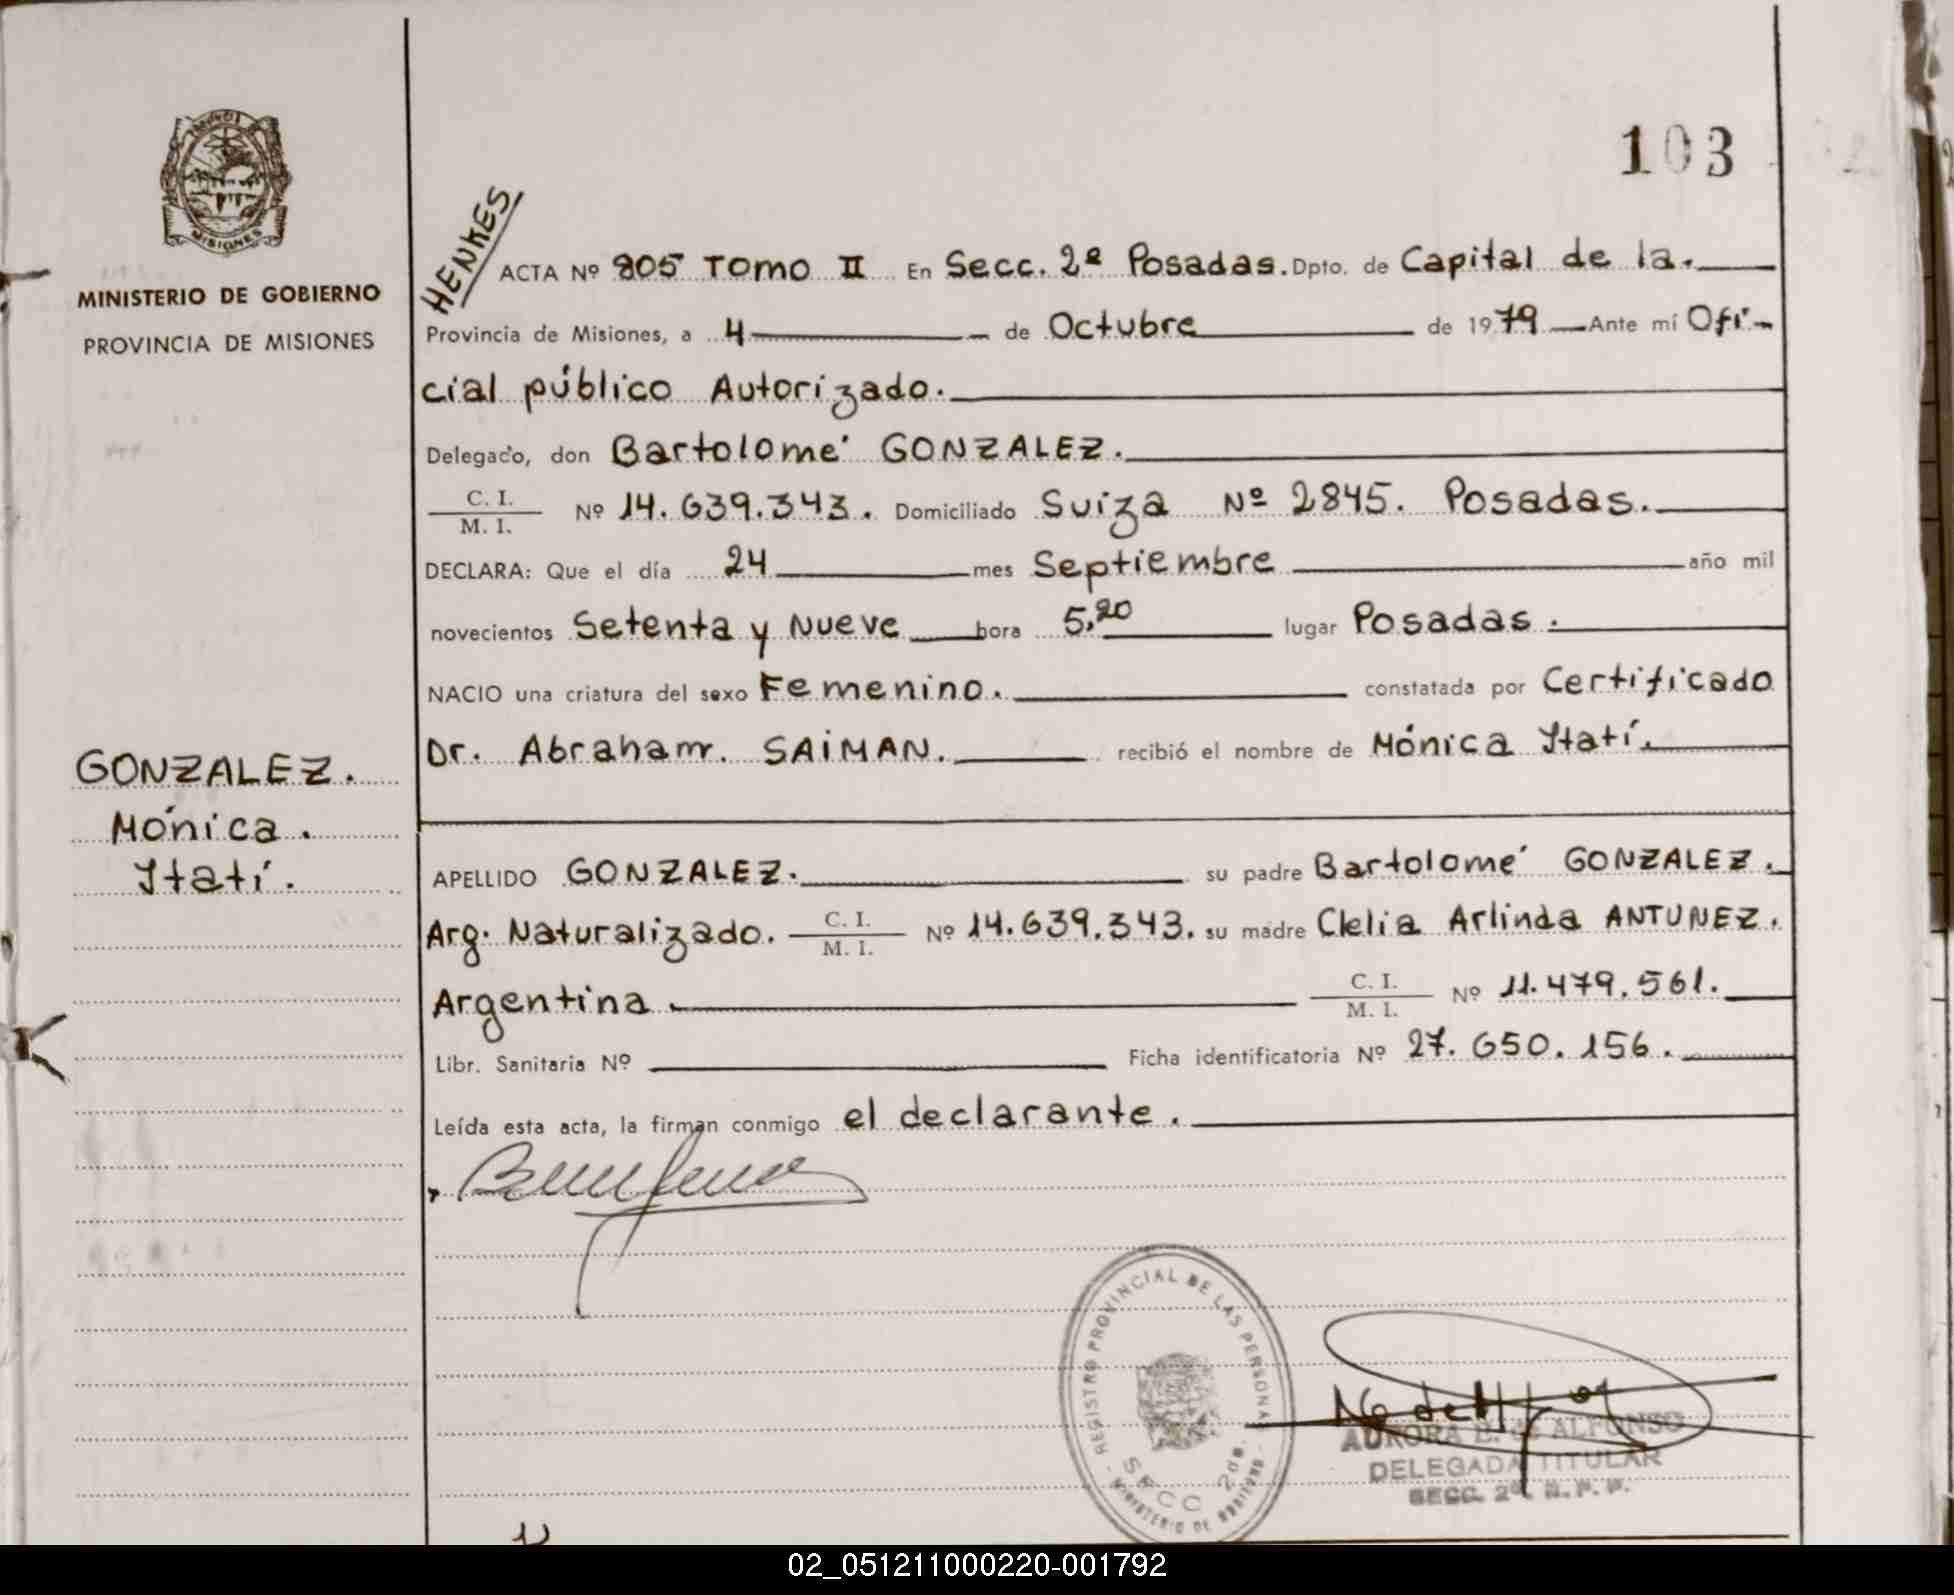 103
MISIONES
MINISTERIO DE GOBIERNO
PROVINCIA DE MISIONES
GONZALEZ.
Mónica.
Ytatí.
HENKES
ACTA Nº 805 Tomo II En Secc. 2ª Posadas. Dpto. de Capital de la.
Provincia de Misiones, a 4 de Octubre de 1979 Ante mí Ofi-
cial público Autorizado.
Delegado, don Bartolomé GONZALEZ.
C. I.
M. I. Nº 14.639.343. Domiciliado Suiza Nº 2845. Posadas.
DECLARA: Que el día 24 mes Septiembre año mil
novecientos Setenta y Nueve hora 5,20 lugar Posadas.
NACIO una criatura del sexo Femenino. constatada por Certificado
Dr. Abraham. SAIMAN. recibió el nombre de Mónica Ytatí.
APELLIDO GONZALEZ. su padre Bartolomé GONZALEZ.
Arg. Naturalizado. C. I. M. I. Nº 14.639.343. su madre Clelia Arlinda ANTUNEZ.
Argentina. C. I. M. I. Nº 11.479.561.
Libr. Sanitaria Nº Ficha identificatoria Nº 27.650.156.
Leída esta acta, la firman conmigo el declarante.
REGISTRO PROVINCIAL DE LAS PERSONAS
SECC 2da.
MINISTERIO DE GOBIERNO
AURORA E. de ALFONSO
DELEGADA TITULAR
SECC. 2ª R. P. P.
02_051211000220-001792